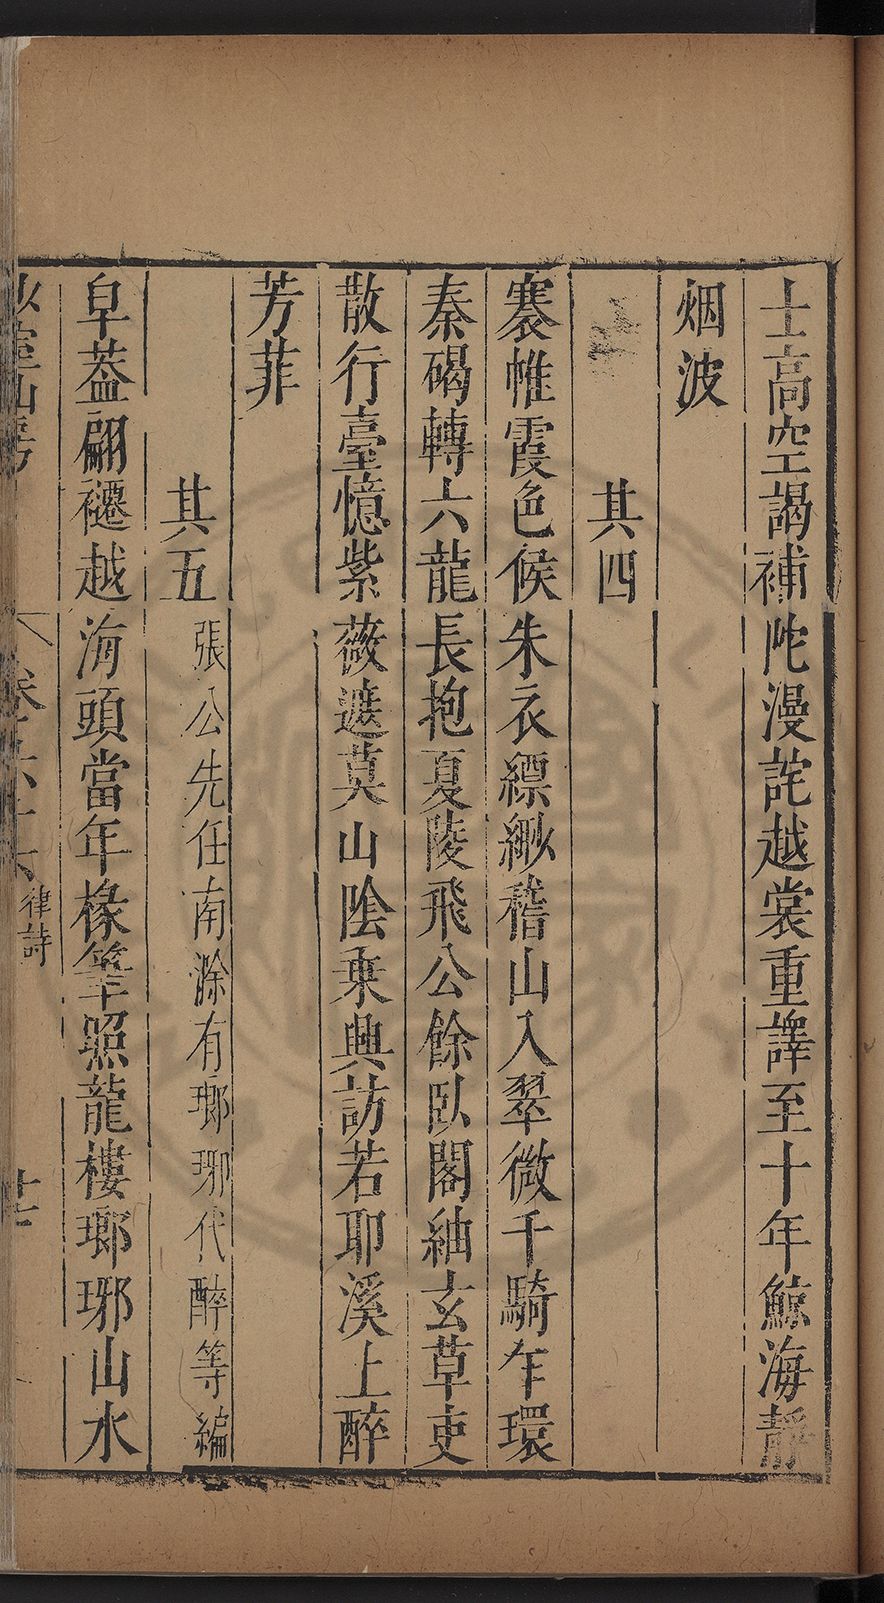 士高空謁補陀漫詫越裳重譯至十年鯨海靜
烟波
其四
褰帷霞色候朱衣縹緲稽山入翠微千騎乍環
秦碣轉六龍長抱夏陵飛公餘臥閣紬玄草吏
散行臺憶紫薇遮莫山陰乗興訪若耶溪上醉
芳菲
其五 張公先任南滁有瑯琊代醉等編
皁葢翩䙴越海頭當年椽筆照龍樓瑯琊山水
律詩